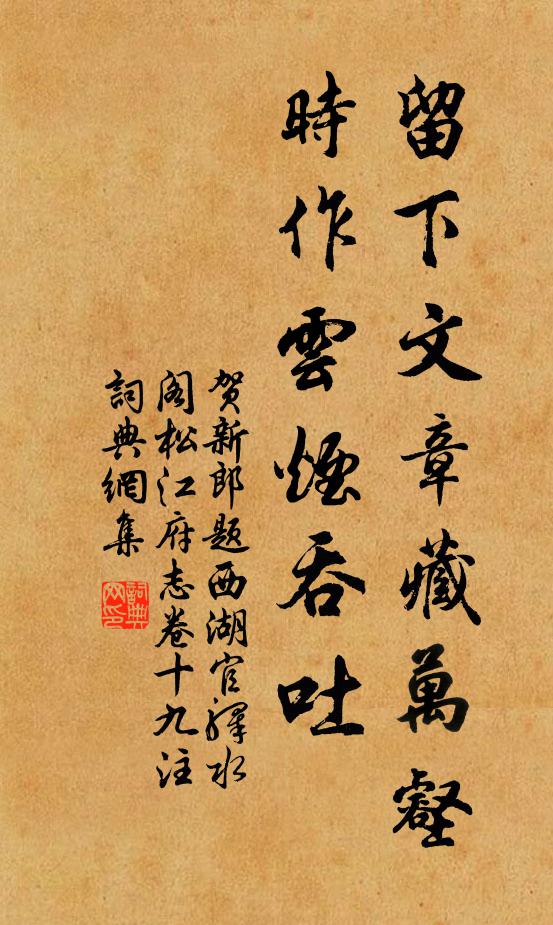 留下文章藏萬壑
時作雲煙吞吐
贺新郎题西湖官驿水
阁松江府志卷十九注
詞典網集
詞典
网印